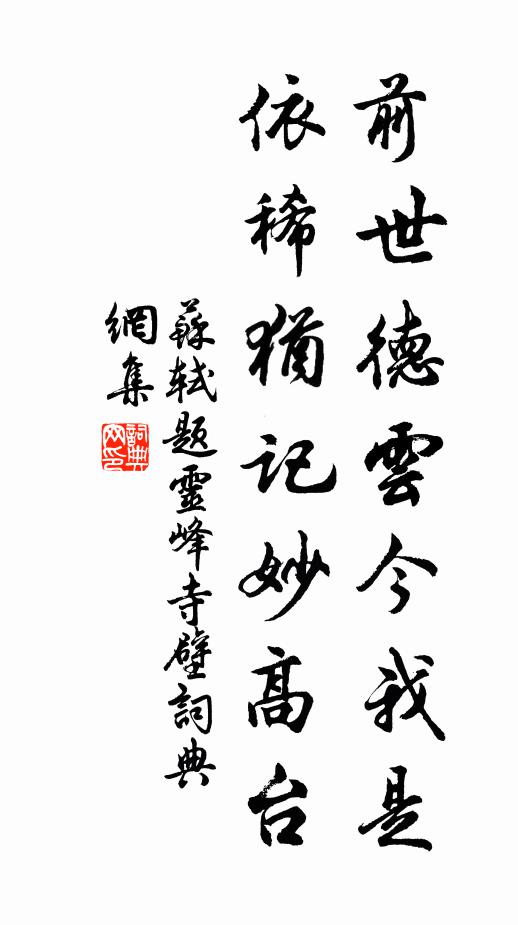 前世德雲今我是
依稀猶記妙高台
蘇軾題靈峰寺壁詞典
網集
詞典网印